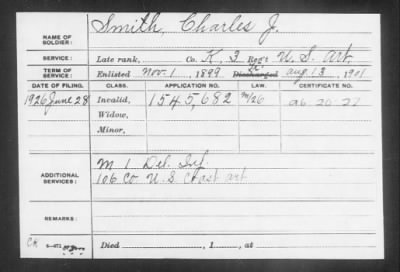 NAME OF SOLDIER: Smith, Charles J.
SERVICE: Late rank, Co. K, 3 Reg't U. S. Art.
TERM OF SERVICE: Enlisted Nov. 1, 1899 Discharged Aug 13, 1901
DATE OF FILING. CLASS. APPLICATION NO. LAW. CERTIFICATE NO.
1926 June 28 Invalid, 1545,682 m/26
Widow,
Minor,
ADDITIONAL SERVICES: M 1 Del. Inf.
106 Co U.S. Coast Art
REMARKS:
Died , 1 , at